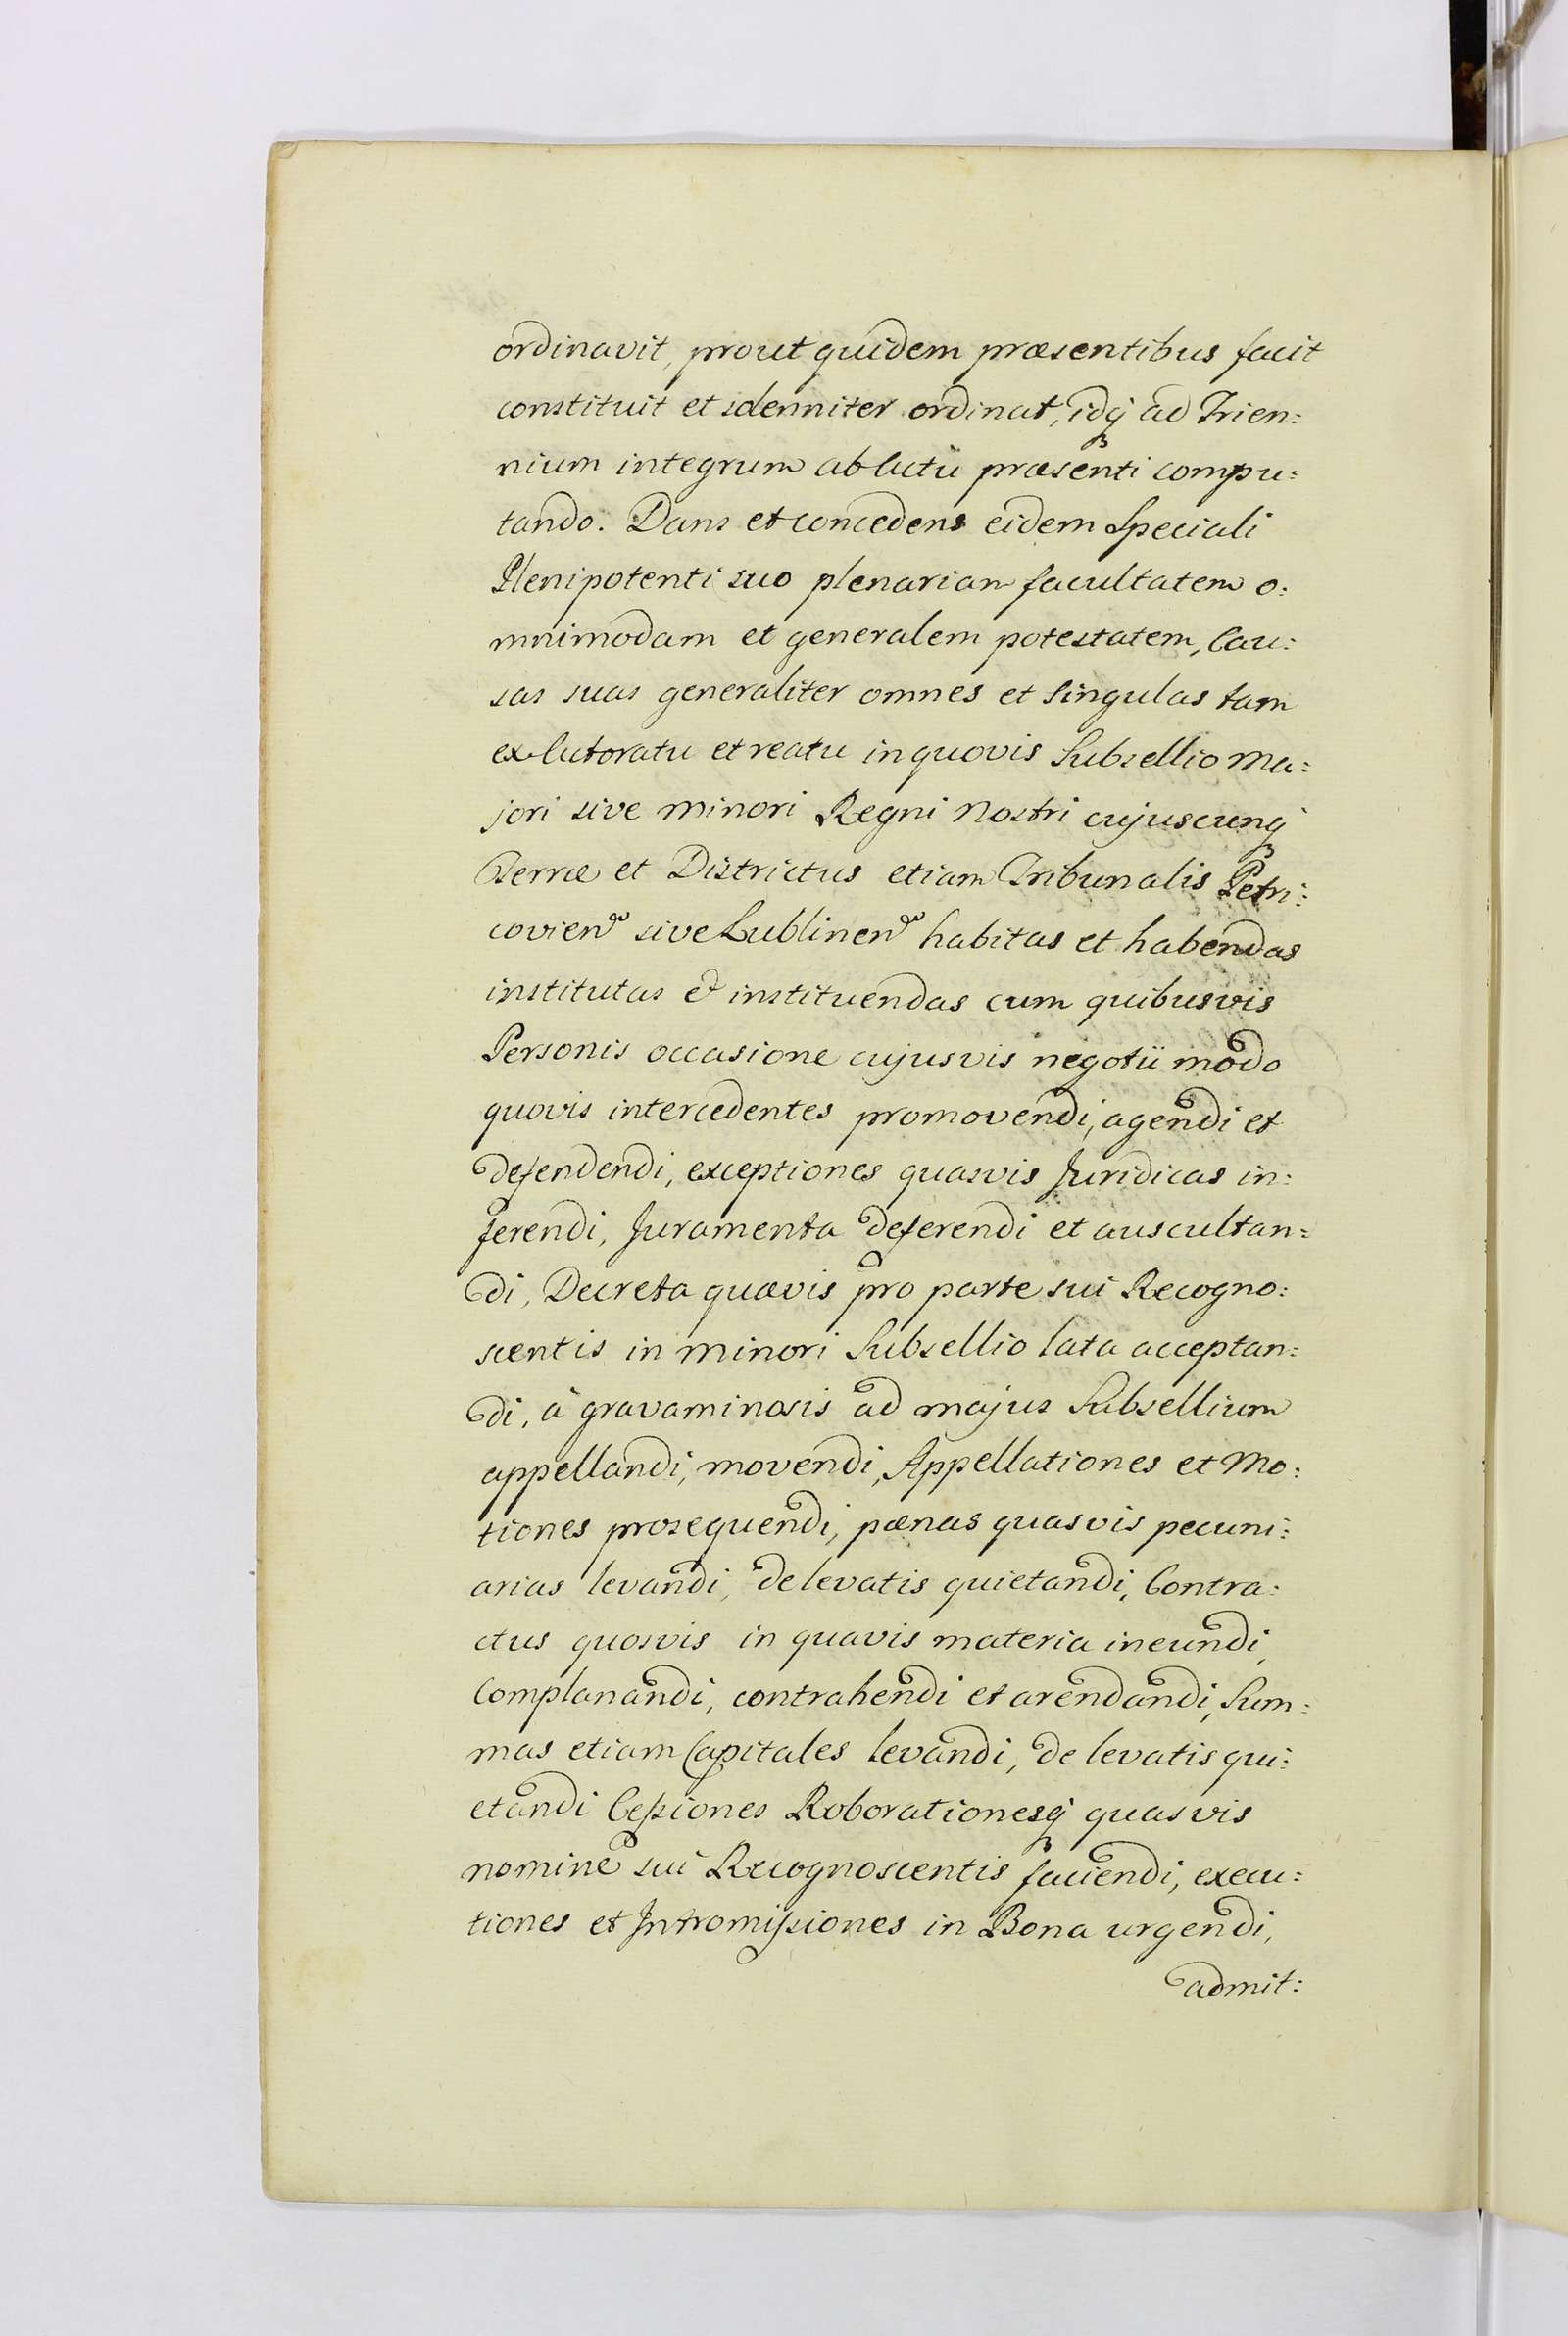 ordinavit, prout quidem præsentibus facit
constituit et solenniter ordinat, idq́ꝫ ad Trien:
nium integrum ab actu præsenti compu:
tando. Dans et concedens eidem Speciali
Plenipotenti suo plenariam facultatem o:
mnimodam et generalem potestatem, Cau:
sas suas generaliter omnes et singulas tam
ex Actoratu et reatu in quovis Subsellio Ma:
jori sive minori Regni Nostri cujuscunq́ꝫ
Terræ et Districtus etiam Tribunalis Petri:
covien͠ sive Lublinen͠ habitas et habendas
institutas & instituendas cum quibusvis
Personis occasione cujusvis negotii modo
quovis intercedentes promovendi, agendi et
defendendi, exceptiones quasvis Juridicas in:
ferendi, Juramenta deferendi et auscultan:
di, Decreta quævis pro parte sui Recogno:
scentis in minori Subsellio lata acceptan:
di, à gravaminosis ad majus Subsellium
appellandi, movendi, Appellationes et Mo:
tiones prosequendi, pænas quasvis pecuni:
arias levandi, de levatis quietandi, Contra:
ctus quosvis in quavis materia ineundi,
Complanandi, contrahendi et arendandi, Sum:
mas etiam Capitales levandi, de levatis qui:
etandi Cessiones Roborationesq́ꝫ quasvis
nomine sui Recognoscentis faciendi, execu:
tiones et Intromissiones in Bona urgendi,
admit: